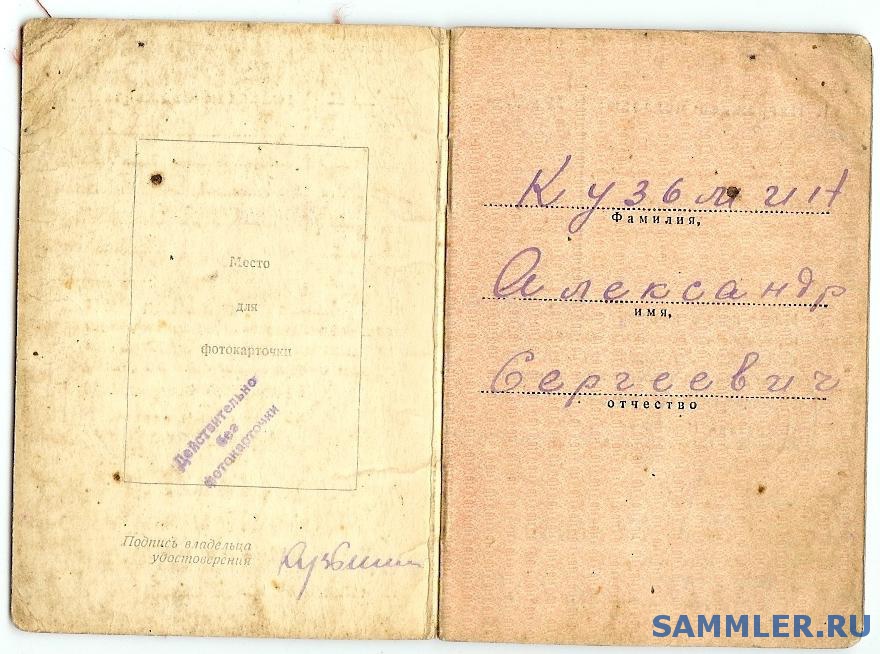 Место
для
фотокарточки
Действительно
без
фотокарточки
Подпись владельца
удостоверения
Кузьмин
Кузьмин
Фамилия,
Александр
имя,
Сергеевич
отчество
SAMMLER.RU